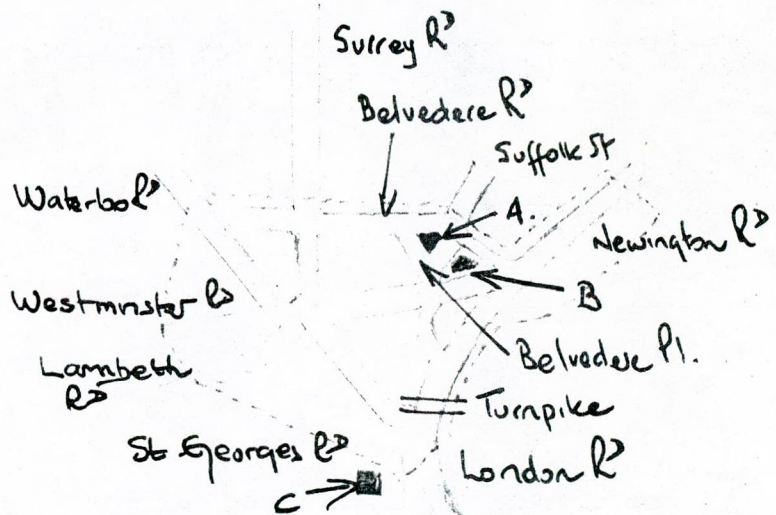 Surrey Rd
Belvedere Rd
Suffolk St
Waterloo Rd
A.
Newington Rd
Westminster Rd
B
Lambeth
Rd
Belvedere Pl.
Turnpike
St Georges Rd
London Rd
C